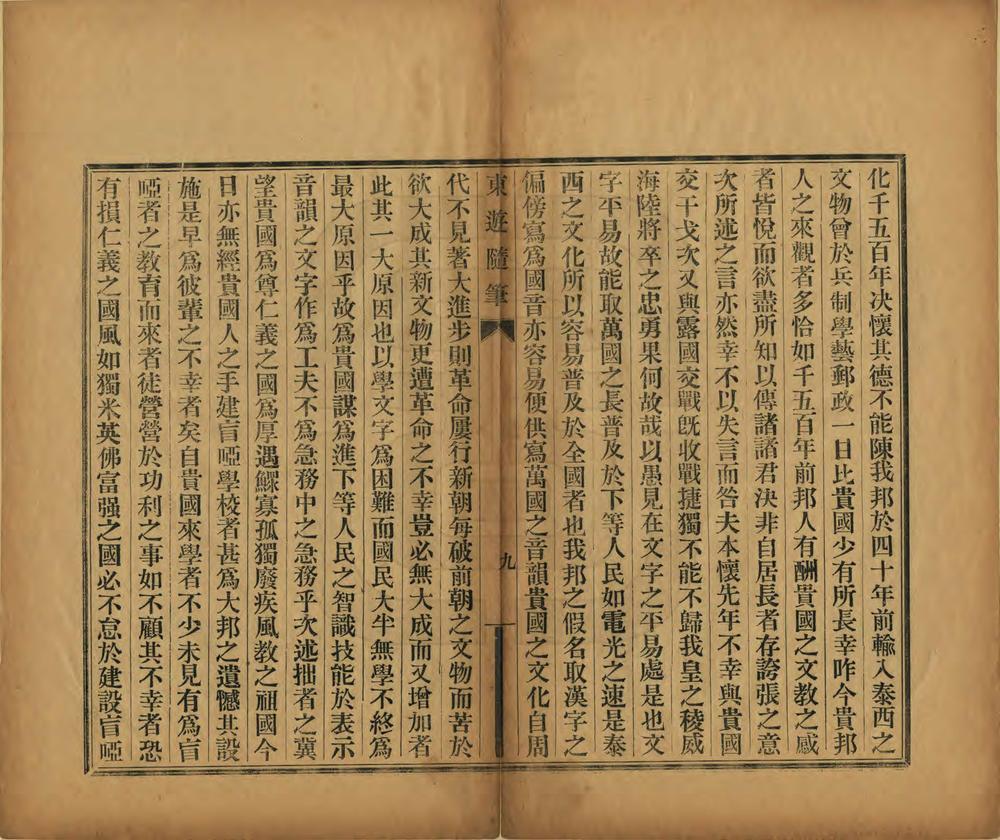 化千五百年決懷其德不能陳我邦於四十年前輸入泰西之
文物曾於兵制學藝郵政一日比貴國少有所長幸昨今貴邦
人之來觀者多恰如千五百年前邦人有酬貴國之文教之感
者皆悅而欲盡所知以傳諸諸君決非自居長者存誇張之意
次所述之言亦然幸不以失言而咎夫本懷先年不幸與貴國
交干戈次又與露國交戰旣收戰捷獨不能不歸我皇之稜威
海陸將卒之忠勇果何故哉以愚見在文字之平易處是也文
字平易故能取萬國之長普及於下等人民如電光之速是泰
西之文化所以容易普及於全國者也我邦之假名取漢字之
偏傍寫爲國音亦容易便供寫萬國之音韻貴國之文化自周
東遊隨筆
九
代不見著大進步則革命屢行新朝每破前朝之文物而苦於
欲大成其新文物更遭革命之不幸豈必無大成而又增加者
此其一大原因也以學文字爲困難而國民大半無學不終爲
最大原因乎故爲貴國謀爲進下等人民之智識技能於表示
音韻之文字作爲工夫不爲急務中之急務乎次述拙者之冀
望貴國爲尊仁義之國爲厚遇鰥寡孤獨廢疾風教之祖國今
日亦無經貴國人之手建盲啞學校者甚爲大邦之遺憾其設
施是早爲彼輩之不幸者矣自貴國來學者不少未見有爲盲
啞者之教育而來者徒營營於功利之事如不顧其不幸者恐
有損仁義之國風如獨米英佛富强之國必不怠於建設盲啞